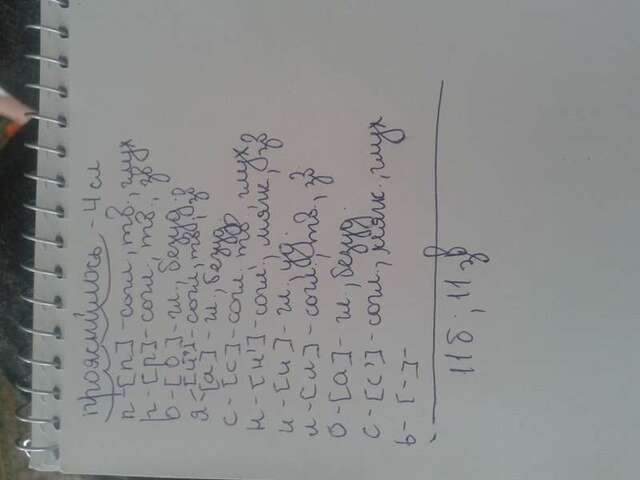 прояснилось - 4 сл
п-[п]-согл, тв., глух
р-[р]-согл, тв, зв
о-[о]-гл, безуд.
я-[й']-согл, тв, зв
-[а]-гл, безуд
с-[с]-согл. тв глух
н-[н']-согл, мягк, зв
и-[и]-гл. уд.
л-[л]-согл, тв, зв.
о-[а]-гл, безуд.
с-[с']-согл, мягк., глух
ь-[-]-
11 б. 11 зв